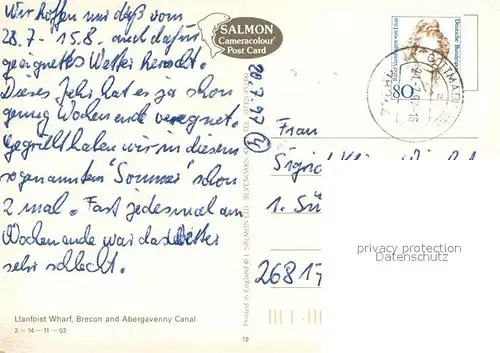 Wir hoffen nur daß vom
28.7.- 15.8. auch dafür
geeignetes Wetter herrscht.
Dieses Jahr hat es ja schon
genug Wochenende verregnet.
Gegrillt haben wir in diesem
sogenannten "Sommer" schon
2 mal. Fast jedesmal am
Wochenende war das Wetter
sehr schlecht.
Llanfoist Wharf, Brecon and Abergavenny Canal
2-14-11-03
SALMON
Cameracolour
Post Card
20.7.97 (4)
Printed in England © J. SALMON LTD. SEVENOAKS
19
Deutsche Bundespost
Rahel Varnhagen von Ense
80
GOTTMAD
Frau
1. Sü
26817
privacy protection
Datenschutz